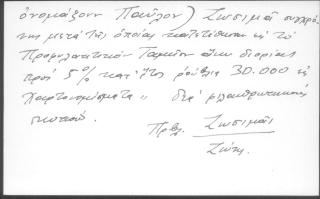 ὀνομάζουν Παῦλον) Ζωσιμᾶ συγχρό
νως μετὰ τῆς ὁποίας κατετέθησαν εἰς τὸ
Ταμεῖον ἄνευ διορίας
πρὸς 5% κατ' ἔτος ρούβλια 30.000 εἰς
Χαρτονομίσματα „ διὰ φιλανθρωπικοὺς
σκοπούς.
Πρβλ. Ζωσιμᾶι
Ζώης.